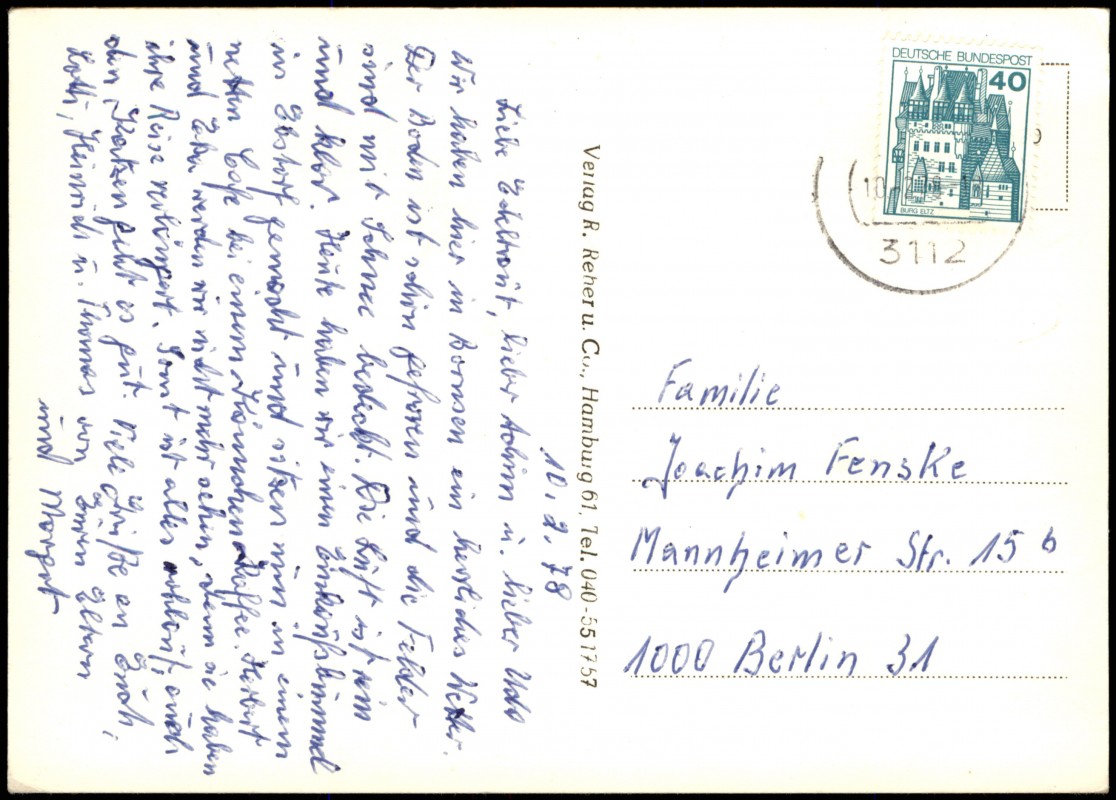 10. 2. 78
Liebe Edeltraut, lieber Achim u. lieber Udo
Wir haben hier in Bornsen ein herrliches Wetter.
Der Boden ist schön gefroren und die Felder
sind mit Schnee bedeckt. Die Luft ist rein
und klar. Heute haben wir einen Einkaufsbummel
in Ebstorf gemacht und sitzen nun in einem
netten Cafe bei einem Kännchen Kaffee. Herbert
und werden wir nicht mehr sehen, denn sie haben
ihre Reise verlängert. Sonst ist alles wohlauf, auch
den Katzen geht es gut. Viele Grüße an Euch,
Lotti, Heinrich u. Thomas von Euren Eltern
und Margot
Verlag R. Reher u. Co., Hamburg 61, Tel. 040-551757
DEUTSCHE BUNDESPOST
40
BURG ELTZ
3112
Familie
Joachim Fenske
Mannheimer Str. 15 b
1000 Berlin 31